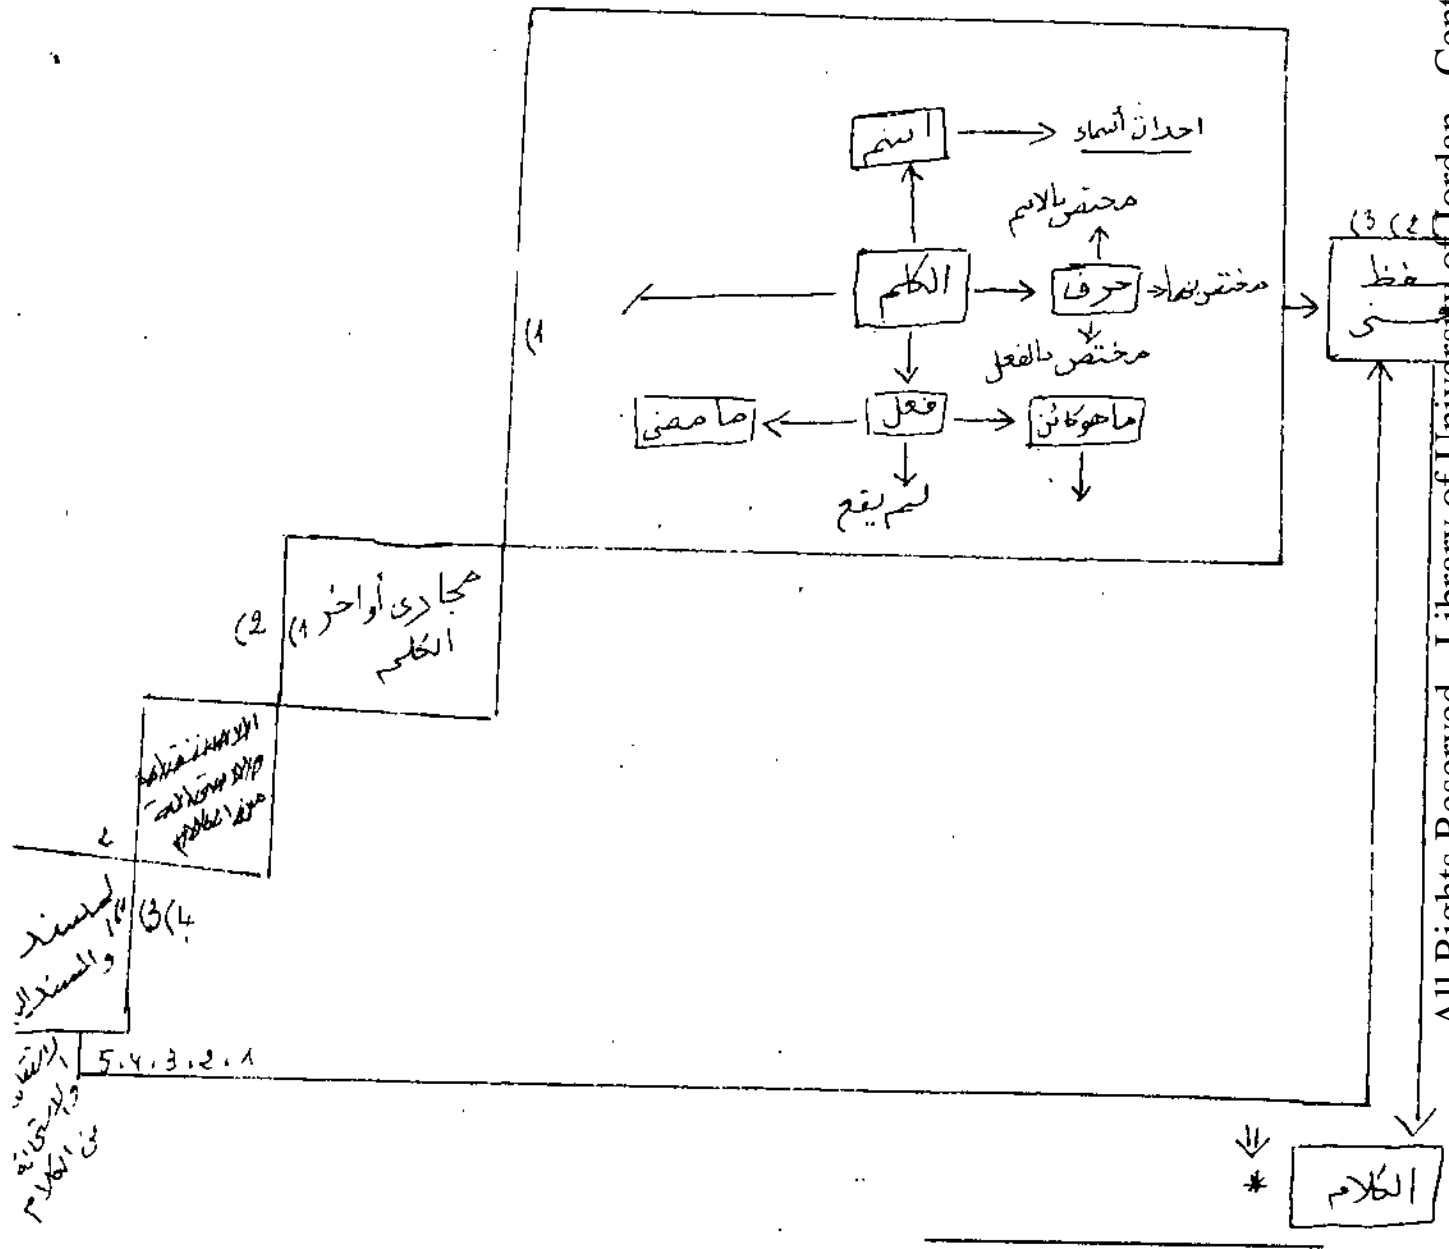 اسم
احداث أسماء
مختص بالاسم
الكلم
حرف
مختص بهما
مختص بالفعل
ما مضى
فعل
ما هو كائن
لم يقع
(1
(3 (2
(2
(1 مجاري أواخر
الكلم
من الكلام
2
(3 (4
المسند
والمسند إليه
5.4.3.2.1
في الكلام
*
الكلام
All Rights Reserved - Library of University of Jordan - Cent